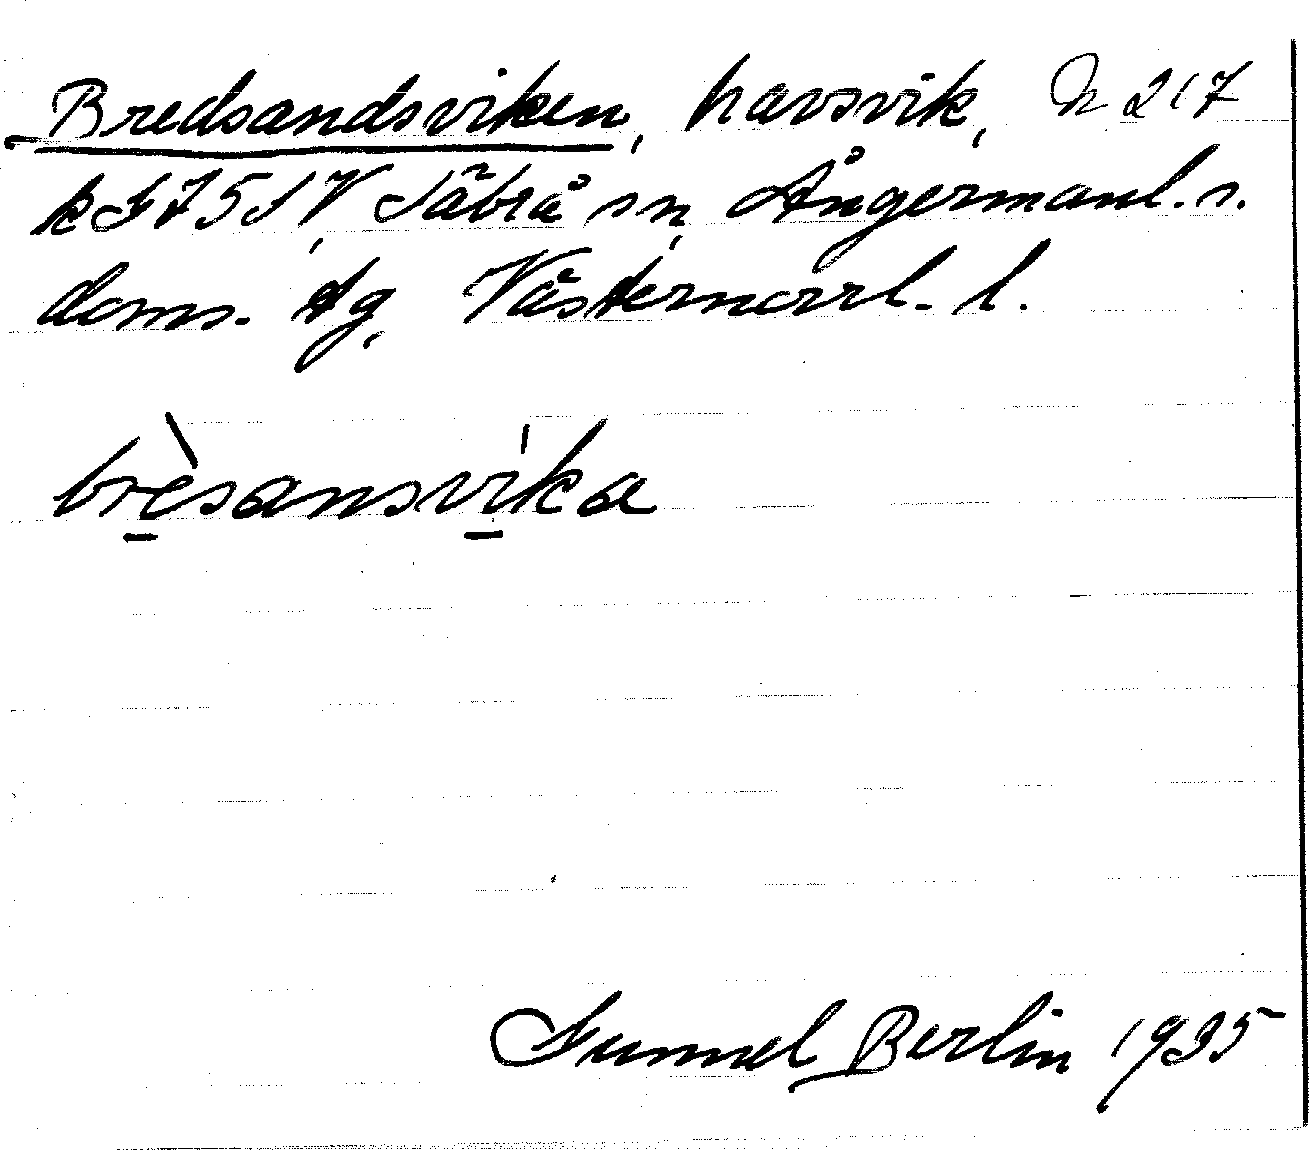 Bredsandsviken, havsvik, N 217
k G 75 SV, Säbrå sn, Ångermanl. s.
doms. tg, Västernorrl. l.
brèsansvika
Gunnel Berlin 1935